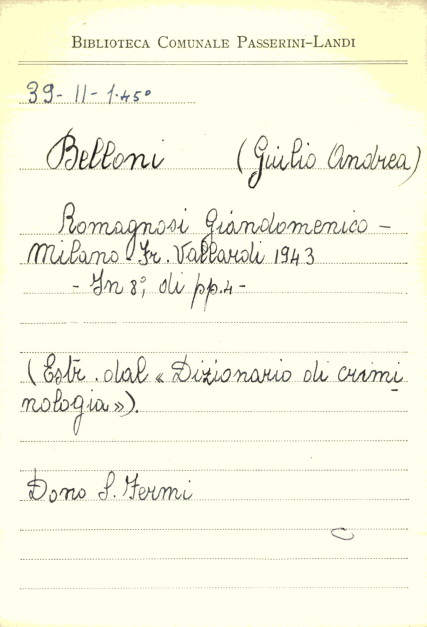 BIBLIOTECA COMUNALE PASSERINI-LANDI
39-II-1.45°
Belloni (Giulio Andrea)
Romagnosi Giandomenico -
Milano Fr. Vallardi 1943
- In 8°, di pp. 4 -
(Estr. dal « Dizionario di crimi
nologia »).
Dono S. Fermi